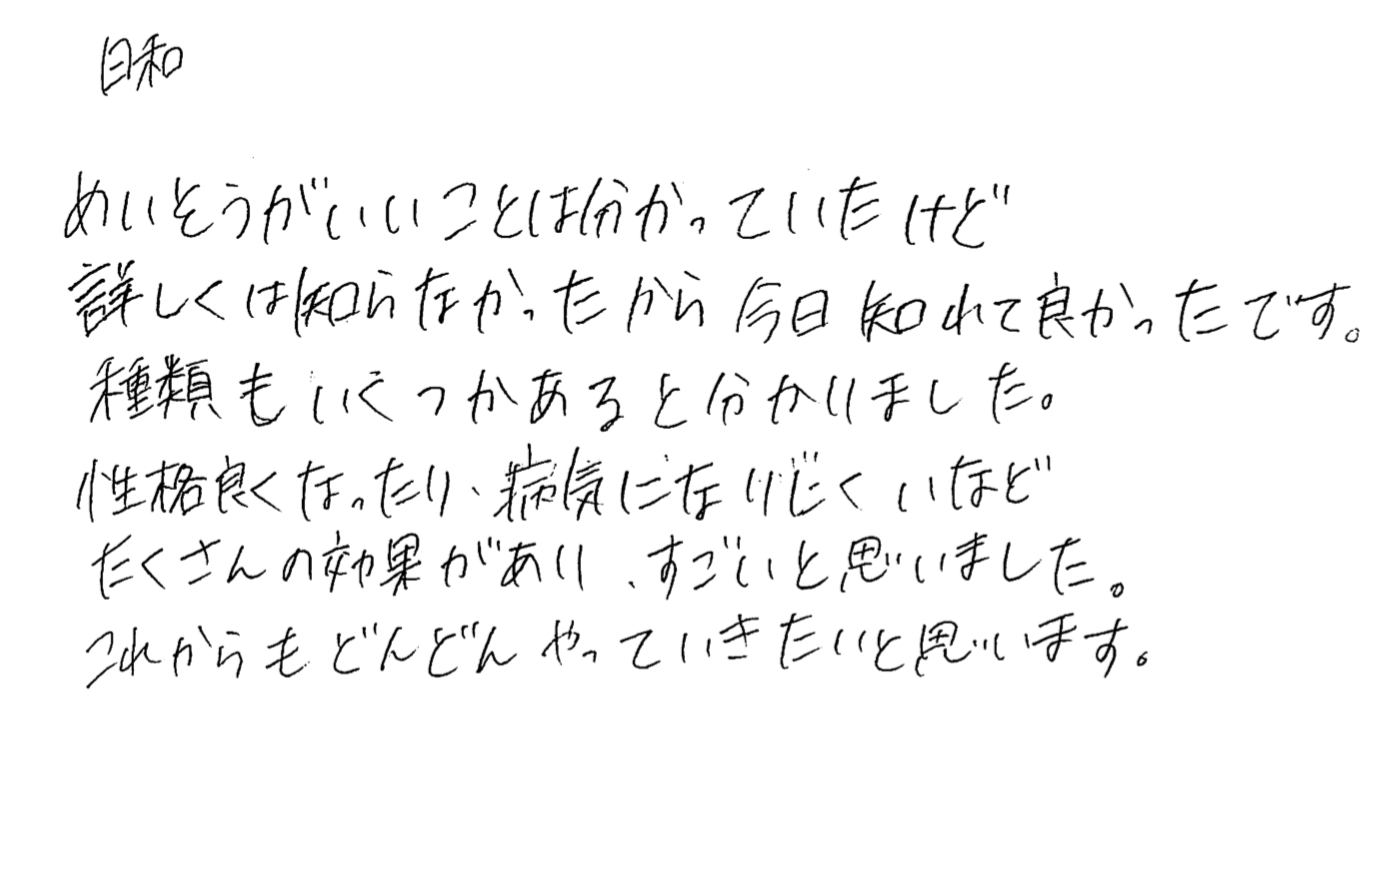 日和
めいそうがいいことは分かっていたけど
詳しくは知らなかったから今日知れて良かったです。
種類もいくつかあると分かりました。
性格良くなったり、病気になりにくいなど
たくさんの効果があり、すごいと思いました。
これからもどんどんやっていきたいと思います。